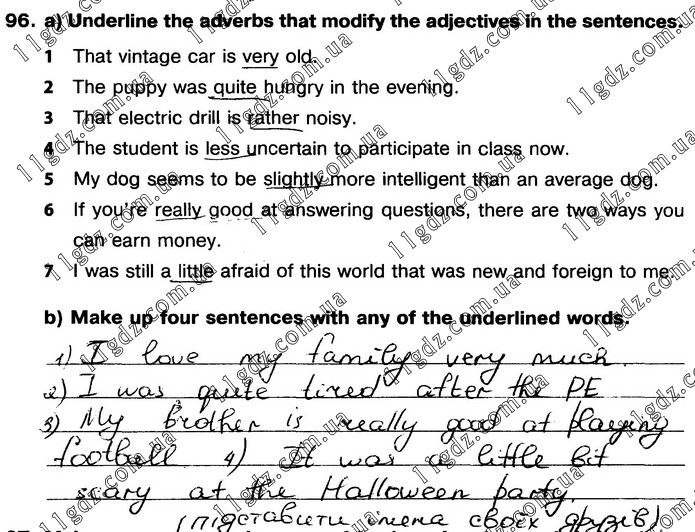 96. a) Underline the adverbs that modify the adjectives in the sentences.
1 That vintage car is very old.
2 The puppy was quite hungry in the evening.
3 That electric drill is rather noisy.
4 The student is less uncertain to participate in class now.
5 My dog seems to be slightly more intelligent than an average dog.
6 If you're really good at answering questions, there are two ways you
can earn money.
7 I was still a little afraid of this world that was new and foreign to me.
b) Make up four sentences with any of the underlined words.
1) I love my family very much.
2) I was quite tired after the PE
3) My brother is really good at playing
football 4) It was a little bit
scary at the Halloween party.
(підставити імена своїх друзів)
11gdz.com.ua